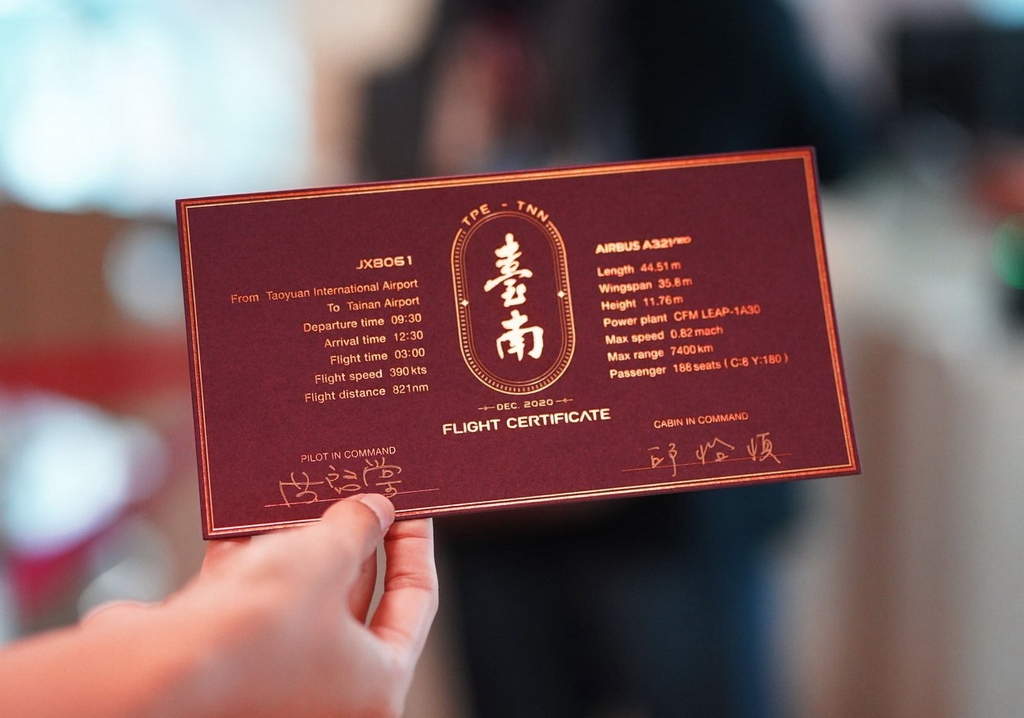 JX8061
From Taoyuan International Airport
To Tainan Airport
Departure time 09:30
Arrival time 12:30
Flight time 03:00
Flight speed 390 kts
Flight distance 821nm
PILOT IN COMMAND
TPE - TNN
臺南
DEC. 2020
FLIGHT CERTIFICATE
AIRBUS A321neo
Length 44.51 m
Wingspan 35.8 m
Height 11.76 m
Power plant CFM LEAP-1A30
Max speed 0.82 mach
Max range 7400 km
Passenger 188 seats ( C:8 Y:180 )
CABIN IN COMMAND